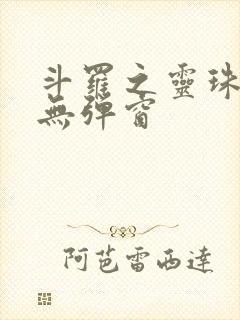 斗羅之靈珠
無彈窗
阿芭雷西達